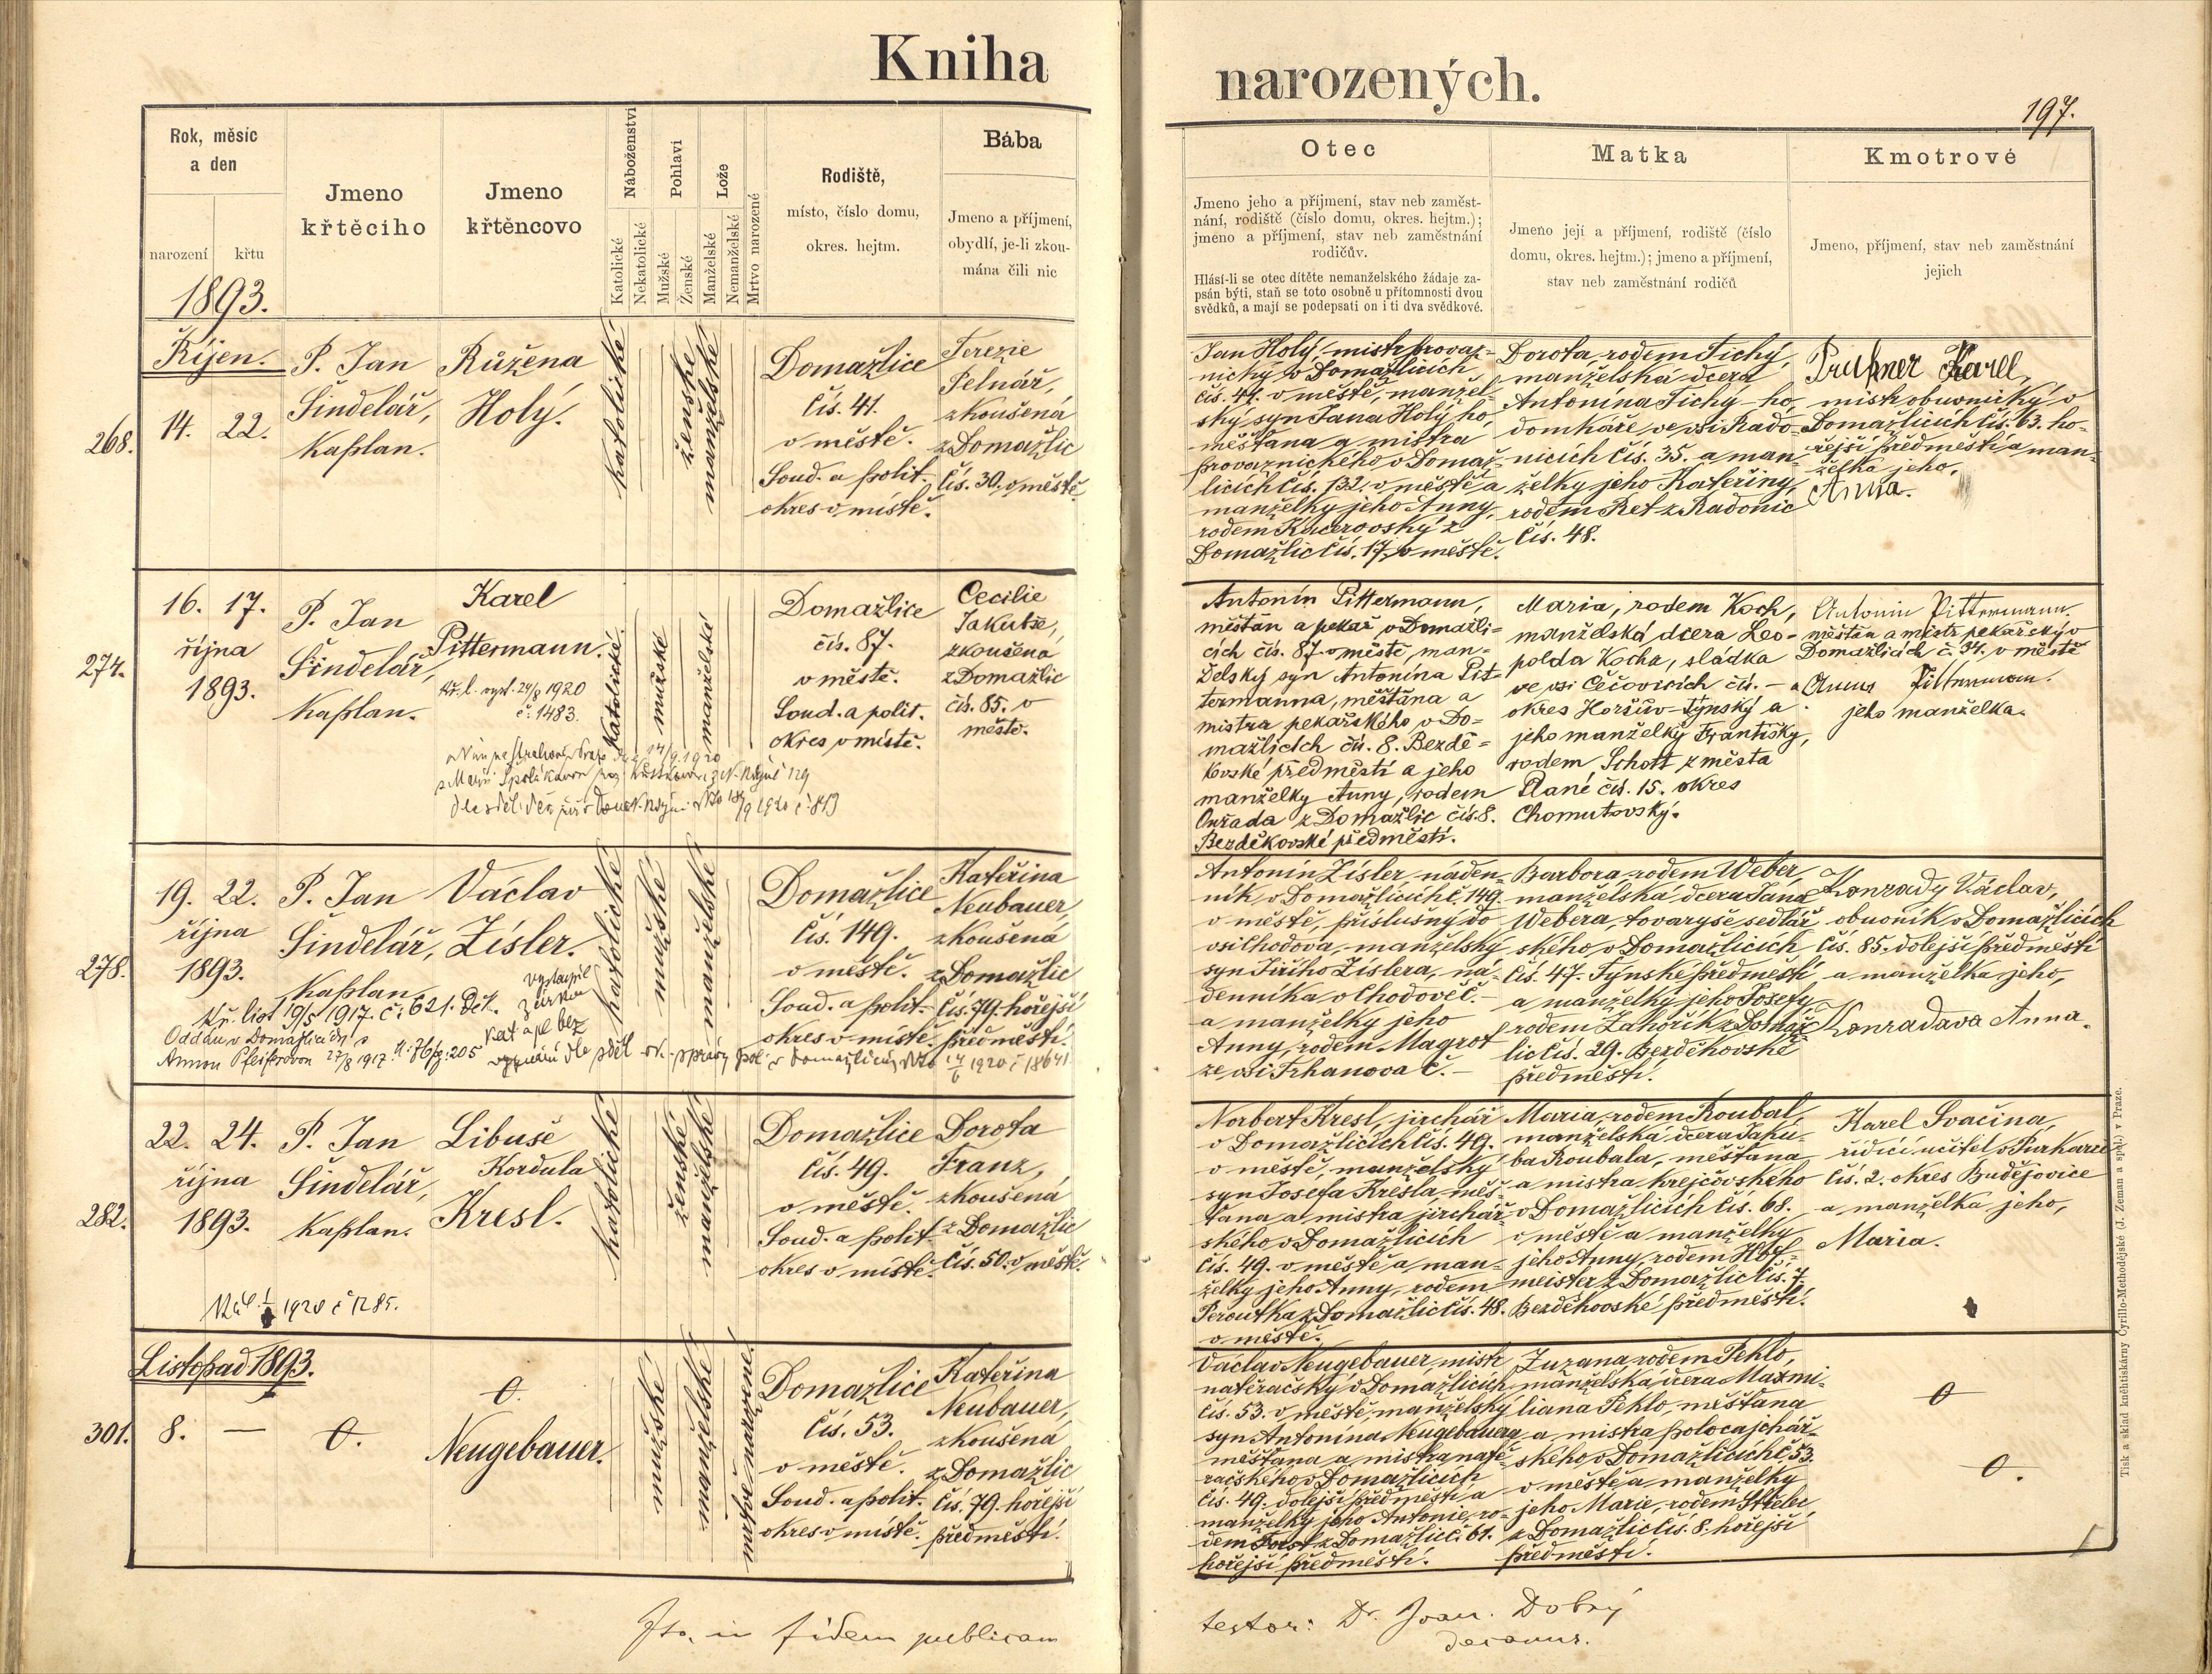 Kniha
narozených.
197.
Rok, měsíc
a den
narození
křtu
1893.
Jmeno
křtěcího
Jmeno
křtěncovo
Náboženství
Katolické
Nekatolické
Pohlaví
Mužské
Ženské
Lože
Manželské
Nemanželské
Mrtvo narozené
Rodiště,
místo, číslo domu,
okres. hejtm.
Bába
Jmeno a příjmení,
obydlí, je-li zkou-
mána čili nic
Otec
Jmeno jeho a příjmení, stav neb zaměst-
nání, rodiště (číslo domu, okres. hejtm.);
jmeno a příjmení, stav neb zaměstnání
rodičův.
Hlásí-li se otec dítěte nemanželského žádaje za-
psán býti, staň se toto osobně u přítomnosti dvou
svědků, a mají se podepsati on i ti dva svědkové.
Matka
Jmeno její a příjmení, rodiště (číslo
domu, okres. hejtm.); jmeno a příjmení,
stav neb zaměstnání rodičů
Kmotrové
Jmeno, příjmení, stav neb zaměstnání
jejich
Říjen.
268.
14. 22.
P. Jan
Šindelář,
kaplan.
Růžena
Holý.
katolické
ženské
manželské
Domažlice
čís. 41.
v městě.
Soud. a polit.
okres v místě.
Terezie
Pelnář,
zkoušená
z Domažlic
čís. 30. v městě
Jan Holý, mistr provaz-
nický v Domažlicích
čís. 41. v městě, manžel-
ský syn Jana Holý ho
měšťana a mistra
provaznického v Domaž-
licích čís. 132. v městě a
manželky jeho Anny,
rodem Kucerovský z
Domažlic čís. 17. v městě.
Dorota, rodem Tichý,
manželská dcera
Antonína Tichy ho,
domkáře ve vsi Rado-
nicích čís. 35. a man-
želky jeho Kateřiny,
rodem Ret z Radonic
čís. 48.
Prukner Karel,
mistr obuvnický v
Domažlicích čís. 63. ho-
řejší předměstí a man-
želka jeho,
Anna.
274.
16. 17.
října
1893.
P. Jan
Šindelář,
kaplan.
Karel
Pittermann.
Kř. l. vyd. 24/8 1920
č. 1483.
katolické
mužské
manželské
Domažlice
čís. 87.
v městě.
Soud. a polit.
okres v místě.
Cecilie
Jakubše,
zkoušená
z Domažlic
čís. 85. v
městě.
Antonín Pittermann,
měšťan a pekař v Domažli-
cích čís. 87 v městě, man-
želský syn Antonína Pit-
termanna, měšťana a
mistra pekařského v Do-
mažlicích čís. 8. Bezdě-
kovské předměstí a jeho
manželky Anny, rodem
Onžada z Domažlic čís. 8.
Bezděkovské předměstí.
Maria, rodem Koch,
manželská dcera Leo-
polda Kocha, sládka
ve vsi Čečovicích čís. –
okres Horšův-Týnský a
jeho manželky Františky,
rodem Schott z města
Plané čís. 15. okres
Chomutovský.
Antonín Pittermann.
měšťan a mistr pekařský v
Domažlicích č. 34. v městě
a Anna Pittermann.
jeho manželka.
278.
19. 22.
října
1893.
P. Jan
Šindelář,
kaplan
Václav
Zísler.
Kř. list 19/5 1917. č: 621. Děk.
Oddán v Domažlicích s
Annou Pfeiferovou 27/8 1917.
vystoupil
z církve
kat a je bez
vyznání dle sděl. ok. správy pol. v Domažlicích 1920 č 18641
katolické
mužské
manželské
Domažlice
čís. 149.
v městě.
Soud. a polit.
okres v místě.
Kateřina
Neubauer,
zkoušená
z Domažlic
čís. 79. hořejší
předměstí.
Antonín Zísler, náden-
ník v Domažlicích č. 149.
v městě, příslušný do
vsi Chodova, manželský
syn Jiřího Zíslera, ná-
denníka v Chodově č. –
a manželky jeho
Anny, rodem Magrot
ze vsi Trhanova č. –
Barbora, rodem Weber,
manželská dcera Jana
Webera, tovaryše sedlář-
ského v Domažlicích
čís. 47. Týnské předměstí
a manželky jeho Josefy
rodem Zahořík z Domaž-
lic čís. 29. Bezděkovské
předměstí.
Konrady Václav,
obuvník v Domažlicích
čís. 85. dolejší předměstí
a manželka jeho,
Konradava Anna.
282.
22. 24.
října
1893.
P. Jan
Šindelář,
kaplan.
Libuše
Kordula
Kresl.
1920 č 1285.
katolické
ženské
manželské
Domažlice
čís. 49.
v městě.
Soud. a polit
okres v místě.
Dorota
Franz,
zkoušená
z Domažlic
čís. 50. v městě.
Norbert Kresl, jirchář
v Domažlicích čís. 49.
v městě, manželský
syn Josefa Kresla, měš-
ťana a mistra jirchář-
ského v Domažlicích
čís. 49. v městě a man-
želky jeho Anny, rodem
Peroutka z Domažlic čís. 48.
v městě.
Maria, rodem Roubal,
manželská dcera Jaku-
ba Roubala, měšťana
a mistra krejčovského
v Domažlicích čís. 68.
v městě a manželky
jeho Anny, rodem Hof-
meister z Domažlic čís. 7.
Bezděkovské předměstí.
Karel Svačina,
řídící učitel v Purkarci
čís. 2. okres Budějovice
a manželka jeho,
Maria.
Listopad 1893.
301.
8. –
0.
0.
Neugebauer.
mužské
manželské
mrtvě narozené.
Domažlice
čís. 53.
v městě.
Soud. a polit.
okres v místě.
Kateřina
Neubauer,
zkoušená
z Domažlic
čís. 79. hořejší
předměstí.
Václav Neugebauer, mistr
natěračský v Domažlicích
čís. 53. v městě, manželský
syn Antonína Neugebauera
měšťana a mistra natě-
račského v Domažlicích
čís. 49. dolejší předměstí a
manželky jeho Antonie, ro-
dem z Domažlic č. 61.
hořejší předměstí.
Zuzana, rodem Tehlo,
manželská dcera Maxmi-
liana Tehlo, měšťana
a mistra polocajchář-
ského v Domažlicích č. 53.
v městě a manželky
jeho Marie, rodem Střelec
z Domažlic čís. 8. hořejší
předměstí.
0
0.
Ita in fidem publicam
testor: Dr. Joan. Dobrý
decanus.
Tisk a sklad knihtiskárny Cyrillo-Methodějské (J. Zeman a spol.) v Praze.